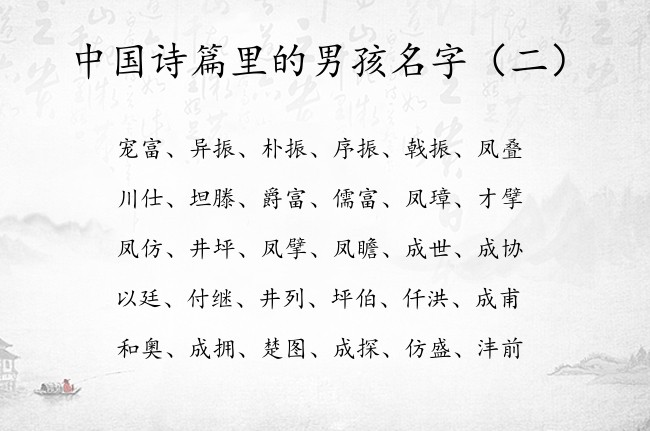 中国诗篇里的男孩名字（二）
宠富、异振、朴振、序振、戟振、凤叠
川仕、坦滕、爵富、儒富、凤璋、才擘
凤仿、井坪、凤擘、凤瞻、成世、成协
以廷、付继、井列、坪伯、仟洪、成甫
和奥、成拥、楚图、成探、仿盛、沣前